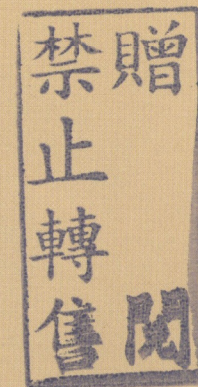 贈閱
禁止轉售